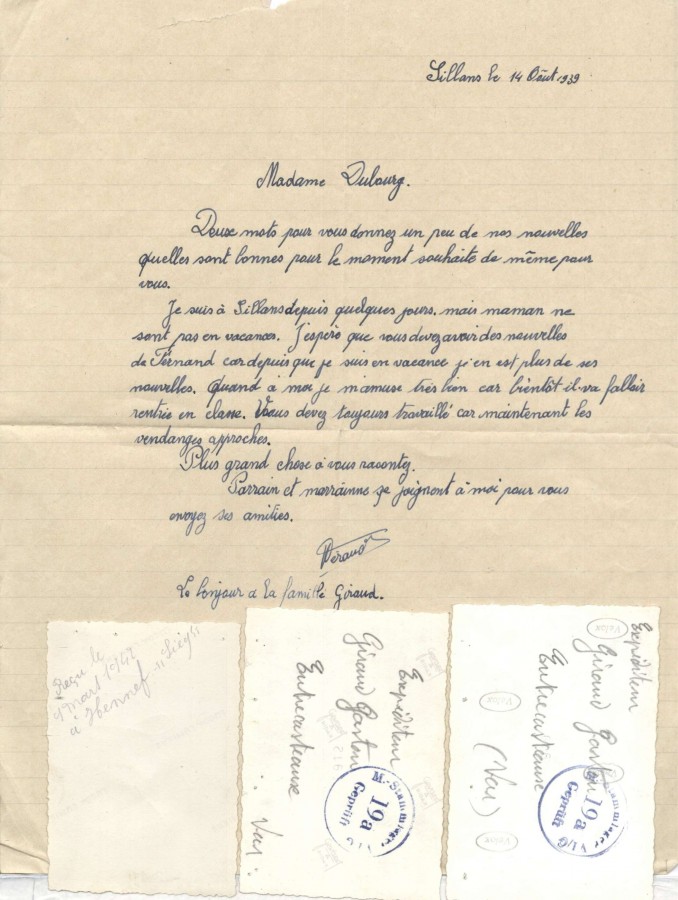 Sillans le 14 Août 1939
Madame Dubourg.
Deuxe mots pour vous donnez un peu de nos nouvelles
quelles sont bonnes pour le moment souhaite de même pour
vous.
Je suis à Sillans depuis quelques jours. mais maman ne
sont pas en vacances. J'espère que vous devez avoir des nouvelles
de Fernand car depuis que je suis en vacance j'en est plus de ses
nouvelles. Quand à moi je m'amuse très bien car bientôt il va falloir
rentrée en classe. Vous devez toujours travaillé car maintenant les
vendanges approches.
Plus grand chose à vous racontez.
Parrain et marrainne se joignont à moi pour vous
envoyez ses amities.
Le bonjour a la famille Giraud.
Reçu le
9 mart 1942
à Hennef "Sieg"
Expéditeur
Giraud Gaston
Entrecasteaux
Var
M.-Stammlager VI/G
19a
Geprüft
Expéditeur
Giraud Gaston
Entrecasteaux
(Var)
Velox
Velox
Velox
Stammlager VI/G
19a
Geprüft